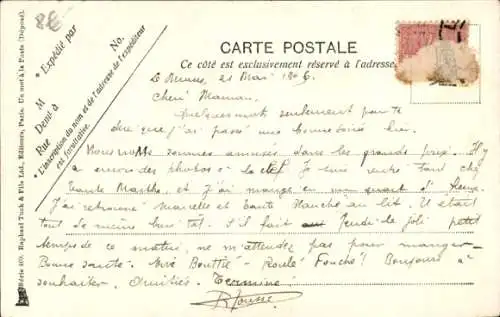 88
* Expédié par
No.
M
Demt à
Rue
* L'inscription du nom et de l'adresse de l'expéditeur
est facultative.
Série 400. Raphael Tuck & Fils Ltd., Editeurs, Paris. Un mot à la Poste (Déposé).
CARTE POSTALE
Ce côté est exclusivement réservé à l'adresse.
21 Mai 1906.
Cher Maman.
Quelques mots seulement pour te
dire que j'ai passé une bonne soirée hier.
Nous nous sommes amusés dans les grands prix. Il y
a encore des photos à la clef. Je suis rentré tard chez
tante Marthe et j'ai mangé en un quart d'heure.
J'ai retrouvé Marcelle et tante Blanche au lit. Il était
tout de même bien tard. S'il fait Jeudi de joli petit
temps de ce matin ne m'attendez pas pour manger.
Bonne santé. Bonjour à
souhaiter. Amitiés.